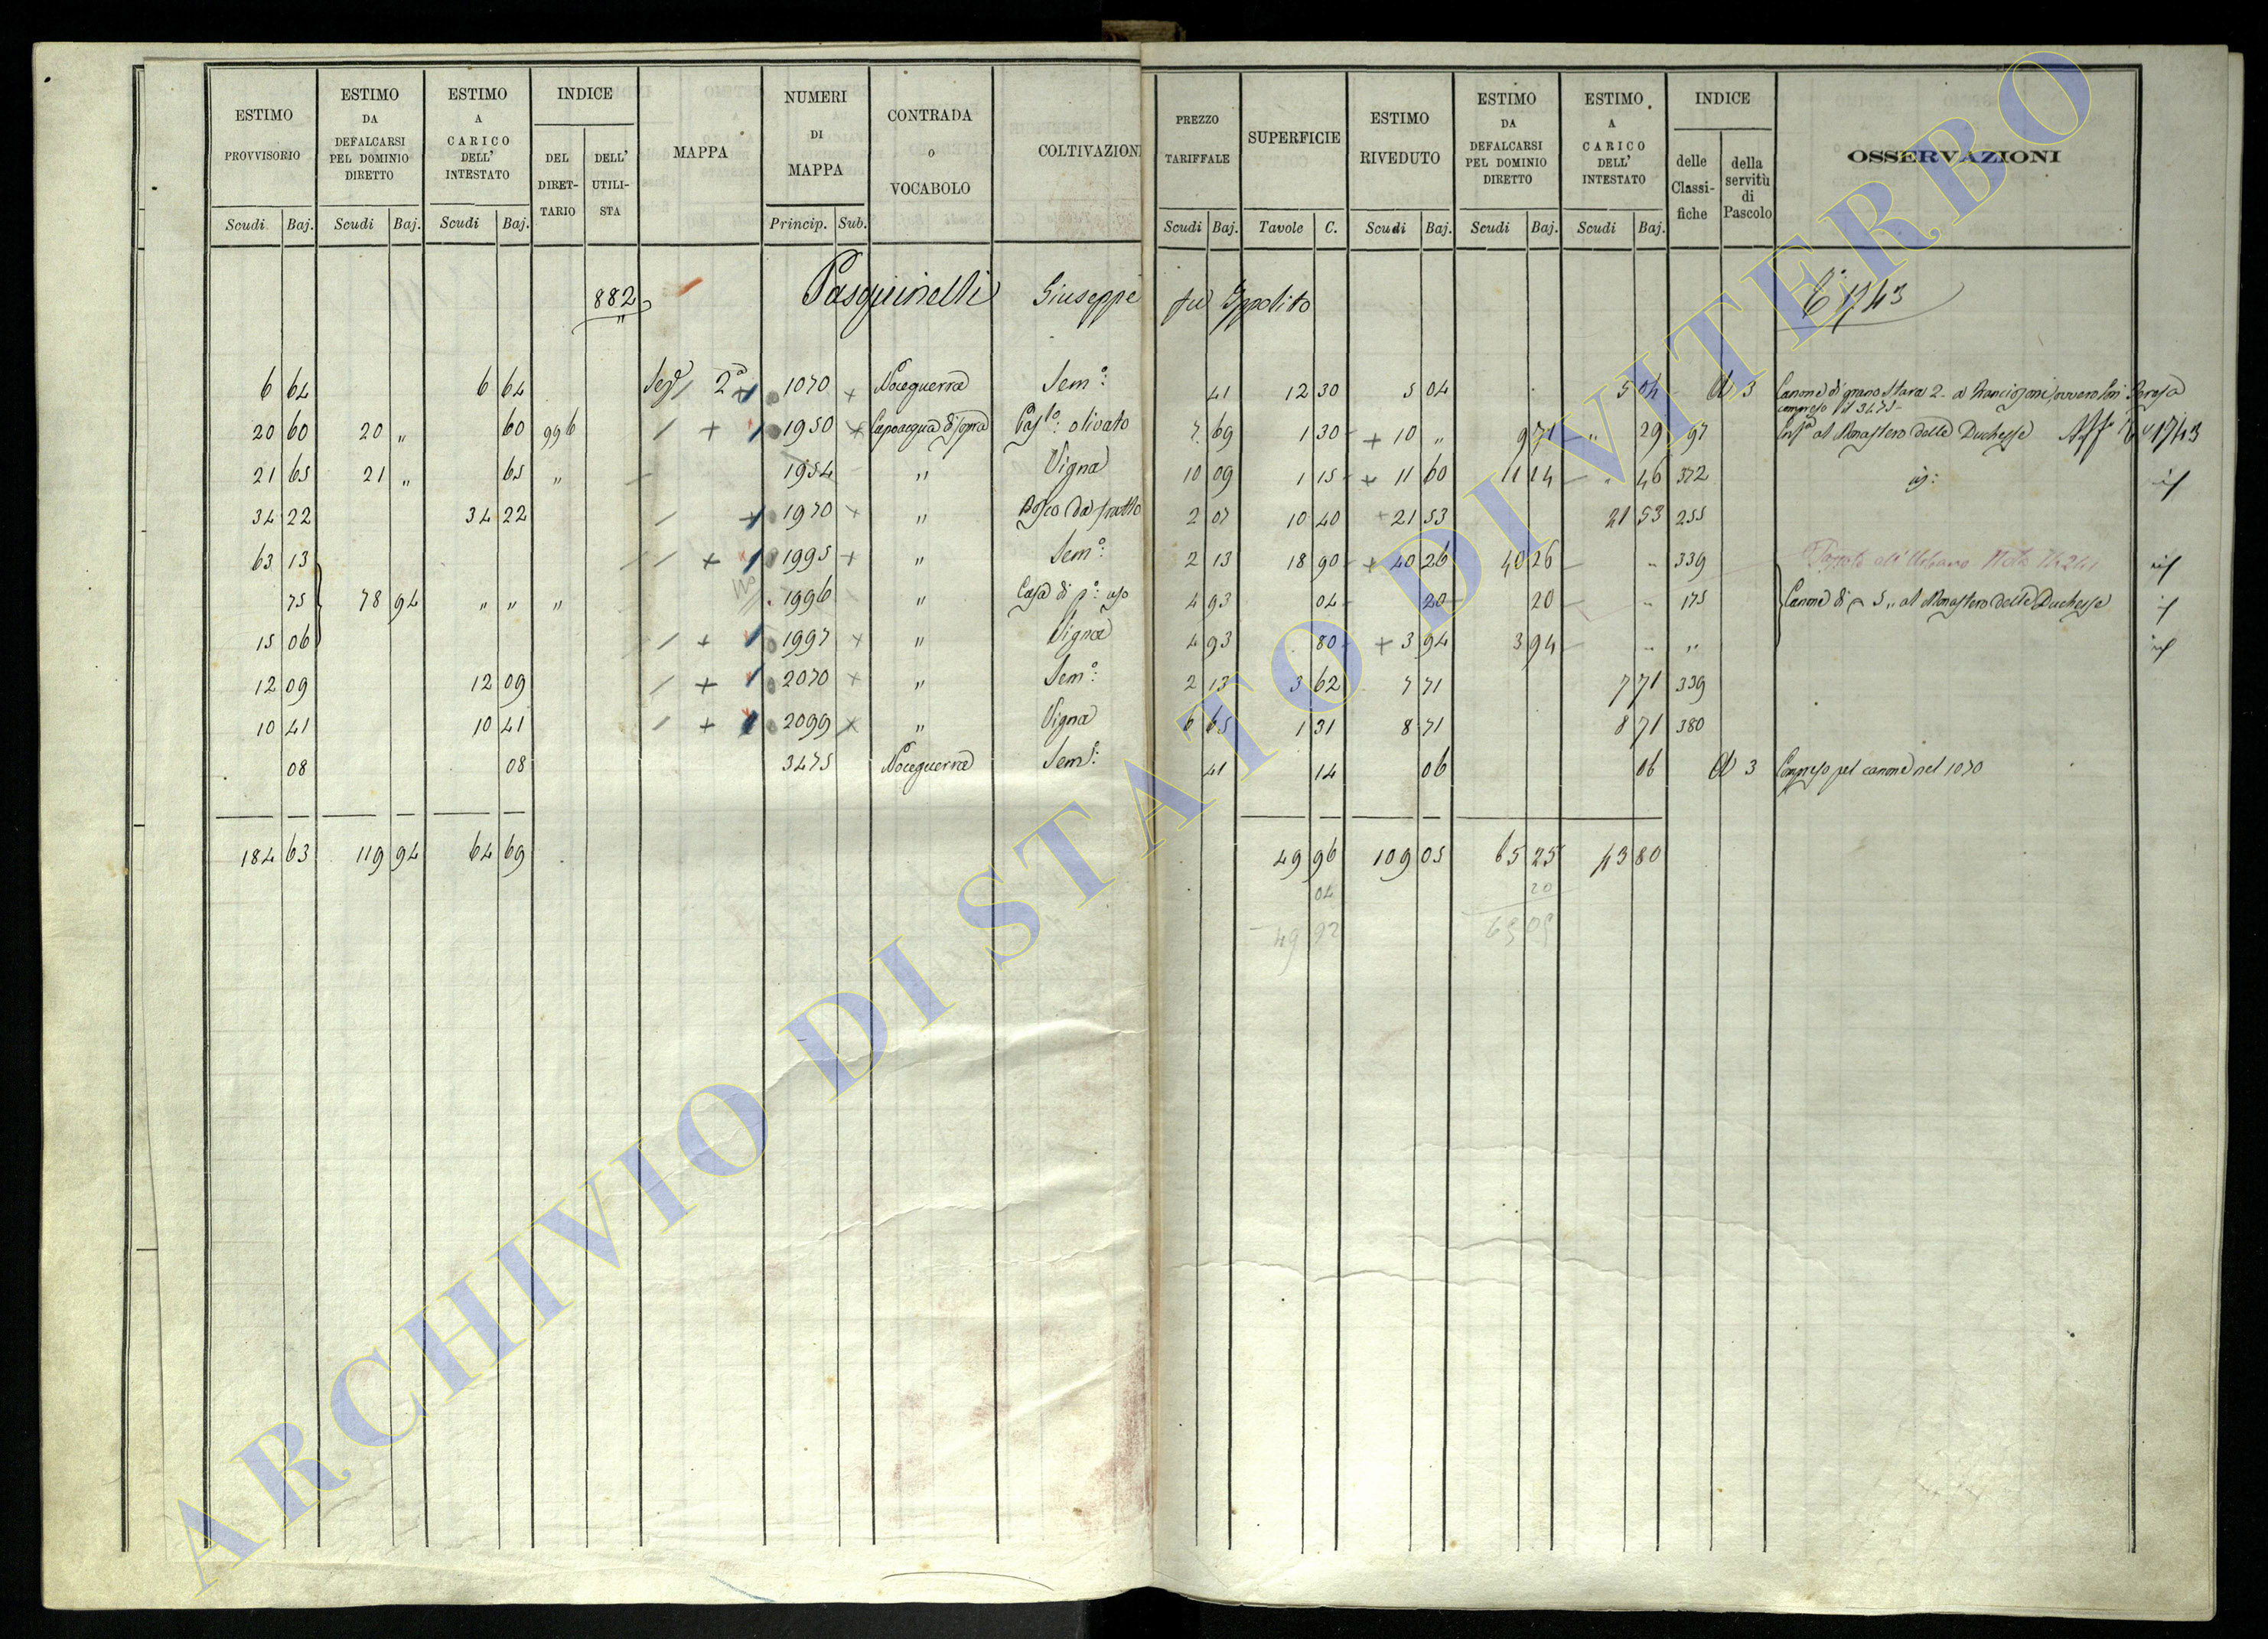 ESTIMO PROVVISORIO | ESTIMO DA DEFALCARSI PEL DOMINIO DIRETTO | ESTIMO A CARICO DELL' INTESTATO | INDICE DEL DIRET-TARIO | DELL' UTILI-STA | MAPPA | NUMERI DI MAPPA | CONTRADA o VOCABOLO | COLTIVAZION | PREZZO TARIFFALE | SUPERFICIE | ESTIMO RIVEDUTO | ESTIMO DA DEFALCARSI PEL DOMINIO DIRETTO | ESTIMO A CARICO DELL' INTESTATO | INDICE delle Classi-fiche | della servitù di Pascolo | OSSERVAZIONI
Scudi Baj. | Scudi Baj. | Scudi Baj. | Princip. Sub. | Scudi Baj. | Tavole C. | Scudi Baj. | Scudi Baj. | Scudi Baj.
882 Pasquinelli Giuseppe fu Ippolito 1743
6 64 | 6 64 | 2a | 1070 | Noceguerra | Semo: | 41 | 12 30 | 5 04 | 5 04 | 3 | Canone di grano Stara 2 a
compreso il 3475
20 60 | 20 „ | 60 | 996 | 1950 | Capoacqua di sopra | Pasto: olivato | 7 69 | 1 30 | + 10 „ | 9 71 | „ 29 | 97 | al Monastero della Duchessa 1743
21 65 | 21 „ | 65 | „ | 1954 | „ | Vigna | 10 09 | 1 15 | + 11 60 | 11 14 | 46 | 372
34 22 | 34 22 | 1970 | „ | Bosco da frutto | 2 07 | 10 40 | 21 53 | 21 53 | 255
63 13 | + | 1995 | „ | Semo: | 2 13 | 18 90 | + 40 26 | 40 26 | 339
75 | 78 94 | „ „ | „ | 1996 | „ | Casa di po: uso | 4 93 | 04 | 20 | 20 | 175 | Canone di 5 „ al Monastero della Duchessa
15 06 | + | 1997 | „ | Vigna | 4 93 | 80 | + 3 94 | 3 94 | „
12 09 | 12 09 | + | 2070 | „ | Semo: | 2 13 | 3 62 | 7 71 | 7 71 | 339
10 41 | 10 41 | + | 2099 | „ | Vigna | 6 65 | 1 31 | 8 71 | 8 71 | 380
08 | 08 | 3475 | Noceguerra | Semo: | 41 | 14 | 06 | 06 | 3 | Compreso pel canone nel 1070
184 63 | 119 94 | 64 69 | 49 96 | 109 05 | 65 25 | 43 80
04 | 20
49 92 | 65 05
ARCHIVIO DI STATO DI VITERBO